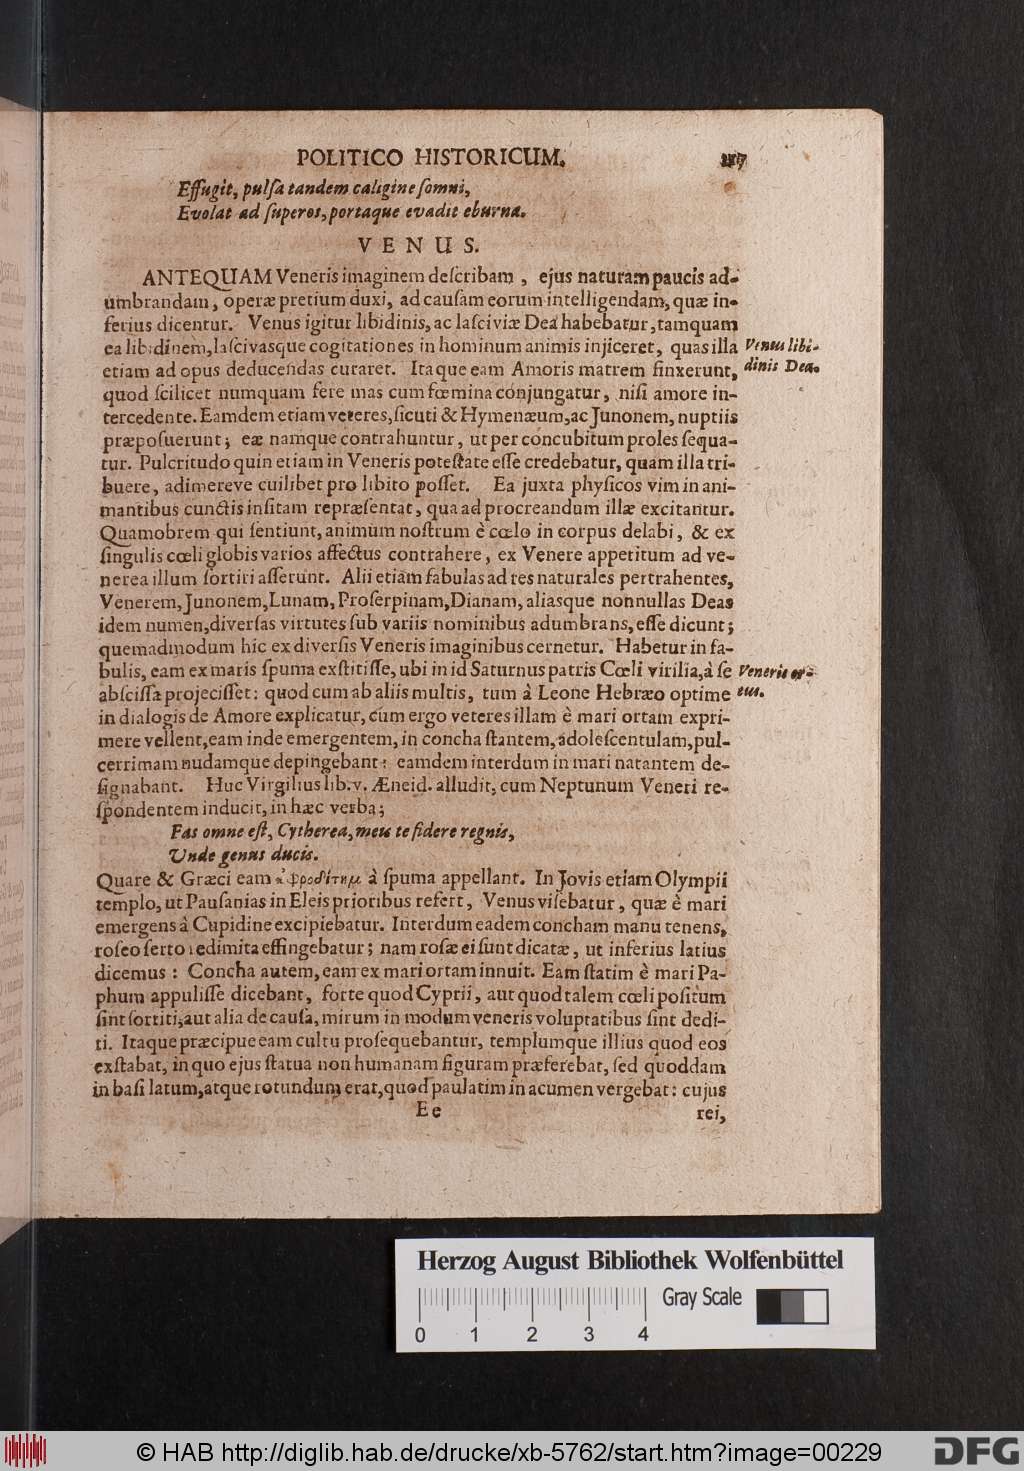 POLITICO HISTORICUM. 217
Effugit, pulſa tandem caligine ſomni,
Evolat ad ſuperos, portaque evadit eburna.
VENUS.
ANTEQUAM Veneris imaginem deſcribam, ejus naturam paucis ad-
umbrandam, operæ pretium duxi, ad cauſam eorum intelligendam, quæ in-
ferius dicentur. Venus igitur libidinis, ac laſciviæ Dea habebatur, tamquam
ea libidinem, laſcivasque cogitationes in hominum animis injiceret, quas illa
etiam ad opus deducendas curaret. Itaque eam Amoris matrem finxerunt,
Venus libi-
dinis Dea.
quod ſcilicet numquam fere mas cum fœmina conjungatur, niſi amore in-
tercedente. Eamdem etiam veteres, ſicuti & Hymenæum, ac Junonem, nuptiis
præpoſuerunt; eæ namque contrahuntur, ut per concubitum proles ſequa-
tur. Pulcritudo quin etiam in Veneris poteſtate eſſe credebatur, quam illa tri-
buere, adimereve cuilibet pro libito poſſet. Ea juxta phyſicos vim in ani-
mantibus cunctis inſitam repræſentat, qua ad procreandum illæ excitantur.
Quamobrem qui ſentiunt, animum noſtrum è cœlo in corpus delabi, & ex
ſingulis cœli globis varios affectus contrahere, ex Venere appetitum ad ve-
nerea illum ſortiri aſſerunt. Alii etiam fabulas ad res naturales pertrahentes,
Venerem, Junonem, Lunam, Proſerpinam, Dianam, aliasque nonnullas Deas
idem numen, diverſas virtutes ſub variis nominibus adumbrans, eſſe dicunt;
quemadmodum hic ex diverſis Veneris imaginibus cernetur. Habetur in fa-
bulis, eam ex maris ſpuma exſtitiſſe, ubi in id Saturnus patris Cœli virilia, à ſe
abſciſſa projeciſſet: quod cum ab aliis multis, tum à Leone Hebræo optime
Veneris or-
tus.
in dialogis de Amore explicatur, cum ergo veteres illam è mari ortam expri-
mere vellent, eam inde emergentem, in concha ſtantem, adoleſcentulam, pul-
cerrimam nudamque depingebant: eamdem interdum in mari natantem de-
ſignabant. Huc Virgilius lib. v. Æneid. alludit, cum Neptunum Veneri re-
ſpondentem inducit, in hæc verba;
Fas omne eſt, Cytherea, meis te fidere regnis,
Unde genus ducis.
Quare & Græci eam ἀφροδίτημ à ſpuma appellant. In Jovis etiam Olympii
templo, ut Pauſanias in Eleis prioribus refert, Venus viſebatur, quæ è mari
emergens à Cupidine excipiebatur. Interdum eadem concham manu tenens,
roſeo ſerto redimita effingebatur; nam roſæ ei ſunt dicatæ, ut inferius latius
dicemus: Concha autem, eam ex mari ortam innuit. Eam ſtatim è mari Pa-
phum appuliſſe dicebant, forte quod Cyprii, aut quod talem cœli poſitum
ſint ſortiti, aut alia de cauſa, mirum in modum veneris voluptatibus ſint dedi-
ti. Itaque præcipue eam cultu proſequebantur, templumque illius quod eos
exſtabat, in quo ejus ſtatua non humanam figuram præferebat, ſed quoddam
in baſi latum, atque rotundum erat, quod paulatim in acumen vergebat: cujus
Ee rei,
Herzog August Bibliothek Wolfenbüttel
Gray Scale
0 1 2 3 4
© HAB http://diglib.hab.de/drucke/xb-5762/start.htm?image=00229
DFG